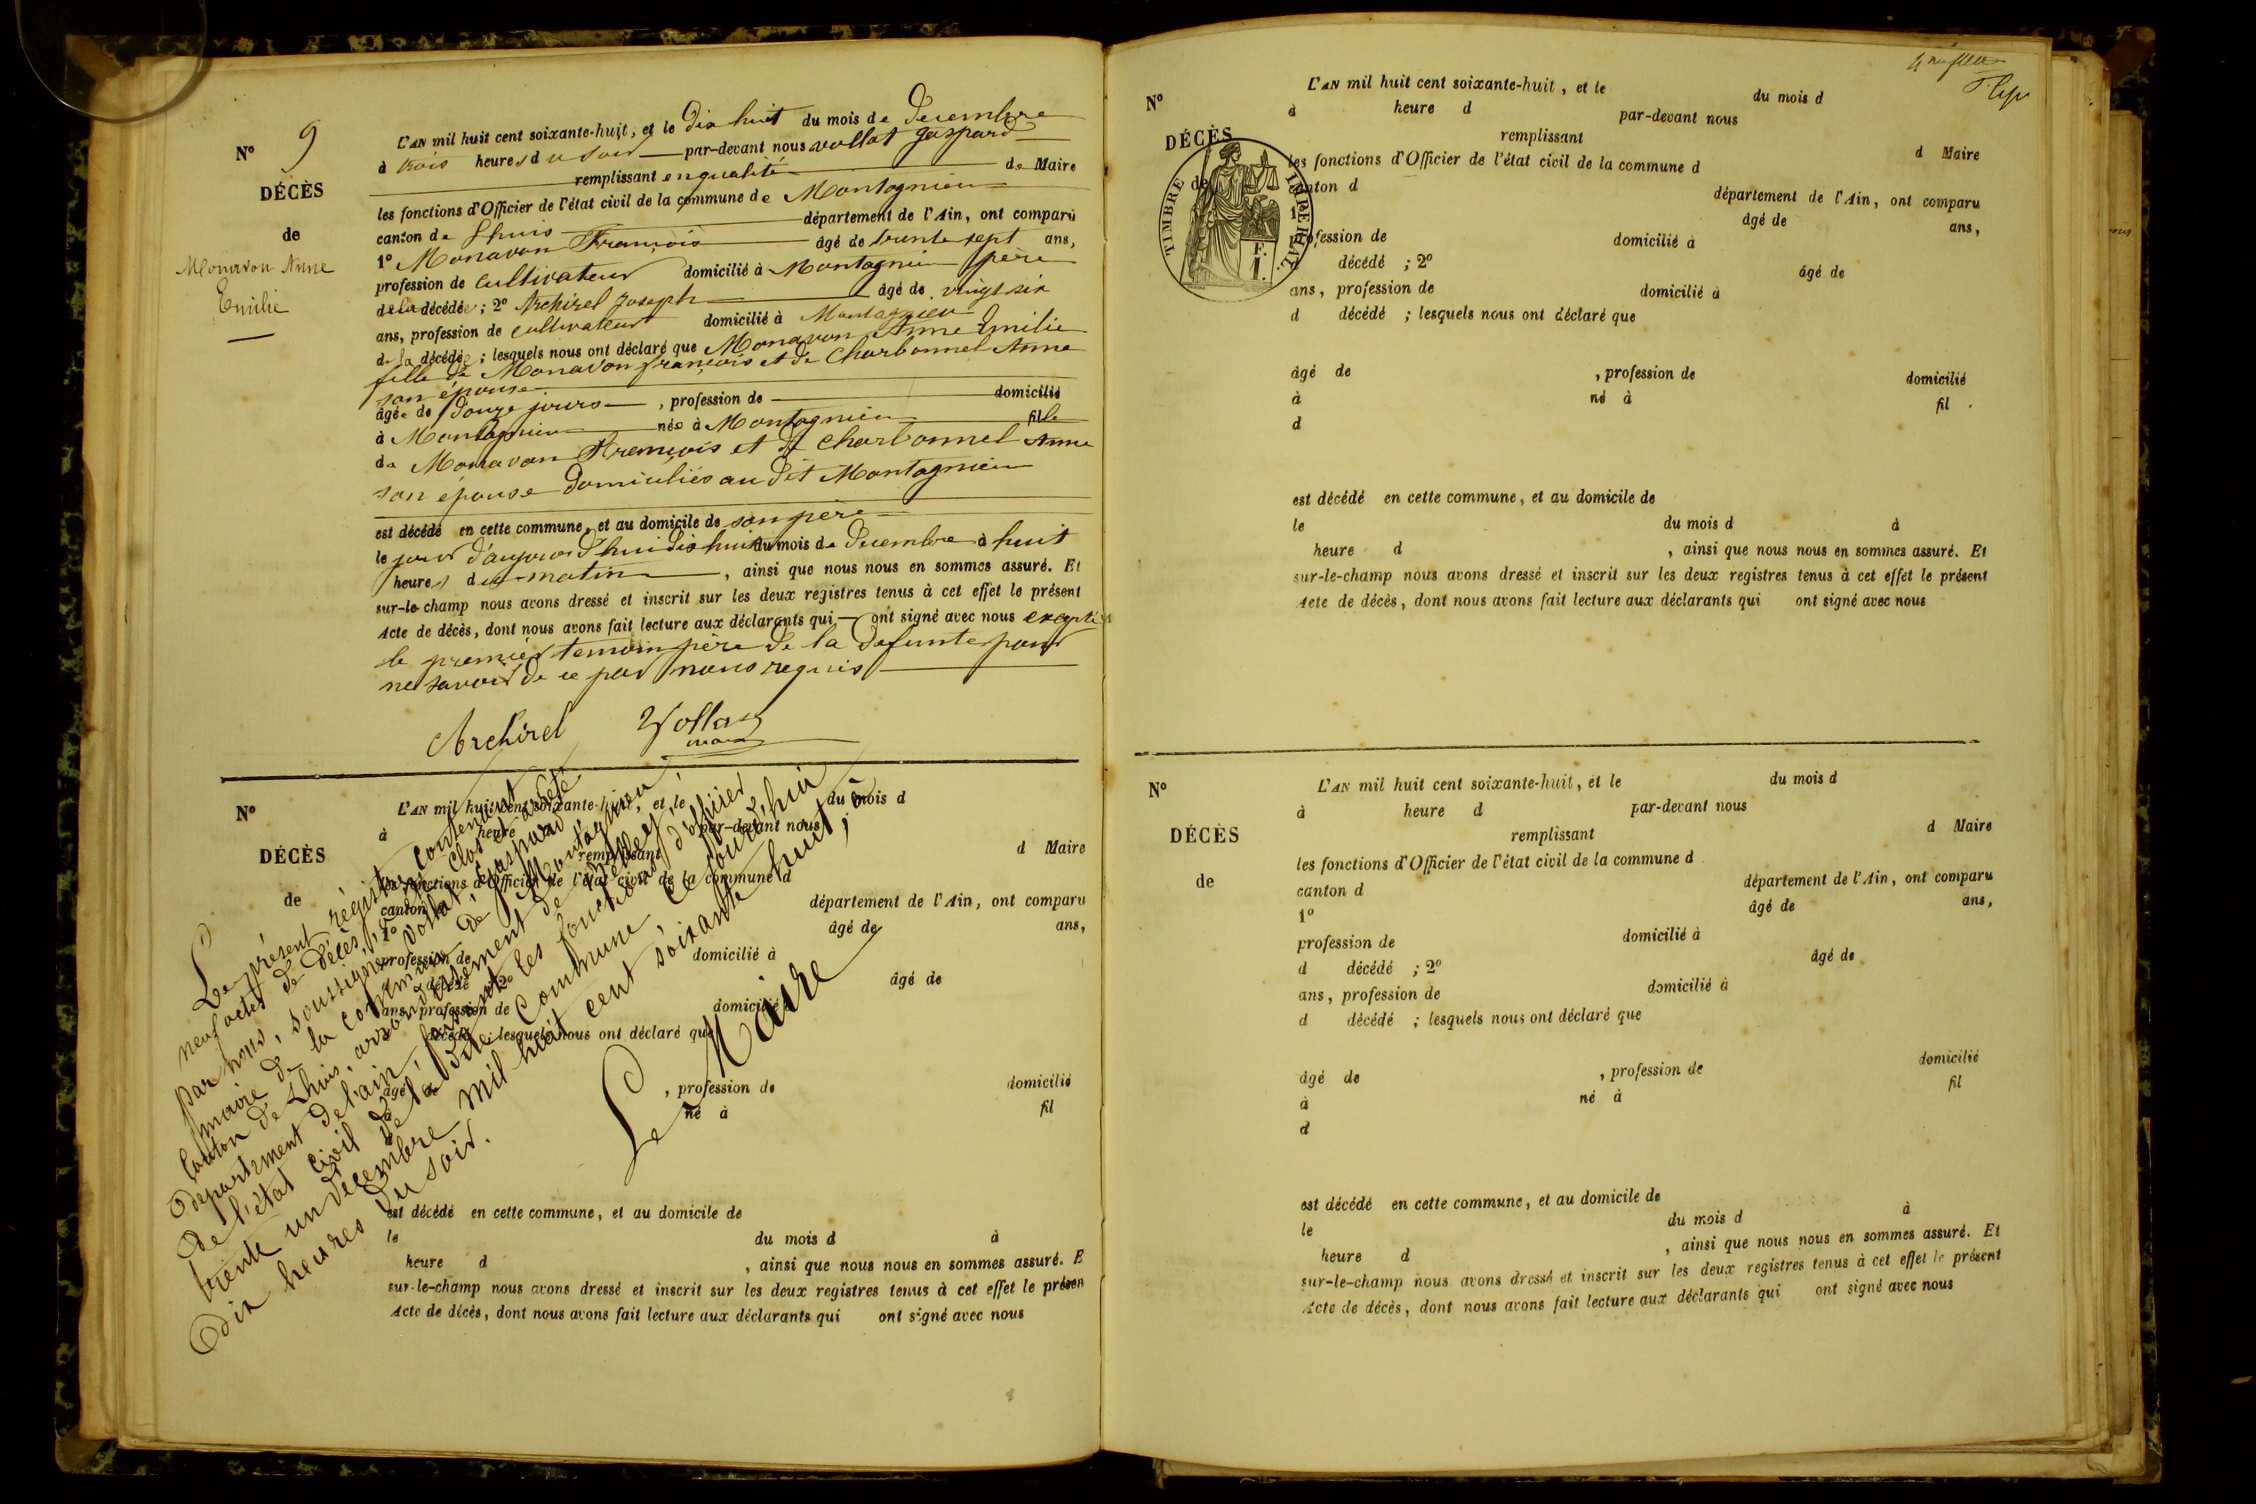 N° 9
DÉCÈS
de
Monavon Anne
Emilie
L'AN mil huit cent soixante-huit, et le Dix huit du mois de Decembre
à trois heures du soir par-devant nous vollat gaspard
remplissant en qualité de Maire
les fonctions d'Officier de l'état civil de la commune de Montagnieu
canton de Lhuis département de l'Ain, ont comparu
1° Monavon François âgé de trente sept ans,
profession de cultivateur domicilié à Montagnieu père
de la décédée ; 2° Archirel Joseph âgé de vingt six
ans, profession de cultivateur domicilié à Montagnieu
de la décédée ; lesquels nous ont déclaré que Monavon Anne Emilie
fille de Monavon françois et de Charbonnel Anne
son épouse
âgée de Douze jours , profession de domicilié
à Montagnieu née à Montagnieu fille
de Monavon François et de Charbonnel Anne
son épouse Domiciliés au dit Montagnieu
est décédé en cette commune, et au domicile de son père
le jour d'aujourd'hui dix huit du mois de Decembre à huit
heures du matin , ainsi que nous nous en sommes assuré. Et
sur-le-champ nous avons dressé et inscrit sur les deux registres tenus à cet effet le présent
Acte de décès, dont nous avons fait lecture aux déclarants qui ont signé avec nous excepté
le premier temoin père de la defunte pour
ne savoir de ce par nous requis
Archirel Vollat
maire
N°
DÉCÈS
de
L'AN mil huit cent soixante-huit, et le du mois d
à heure d par-devant nous
remplissant d Maire
les fonctions d'Officier de l'état civil de la commune d
canton d département de l'Ain, ont comparu
1° âgé de ans,
profession de domicilié à
d décédé ; 2° âgé de
ans, profession de domicilié à
d décédé ; lesquels nous ont déclaré que
âgé de , profession de domicilié
à né à fil
est décédé en cette commune, et au domicile de
le du mois d à
heure d , ainsi que nous nous en sommes assuré. E
sur-le-champ nous avons dressé et inscrit sur les deux registres tenus à cet effet le présen
Acte de décès, dont nous avons fait lecture aux déclarants qui ont signé avec nous
Le présent régistre contenant
neuf actes de Décès, a été clos et arrêté
par nous, soussigné vollat, Gaspard
maire de la commune de Montagnieu
Canton de Lhuis, arrondissement de Belley,
Département de l'ain, faisant les fonctions d'officier
De l'état civil de la dite Commune, ce jourd'hui
trente un décembre mil huit cent soixante huit, à
Dix heures du soir.
Le Maire
N°
DÉCÈS
de
TIMBRE IMPERIAL.
L'AN mil huit cent soixante-huit, et le du mois d
à heure d par-devant nous
remplissant d Maire
les fonctions d'Officier de l'état civil de la commune d
canton d département de l'Ain, ont comparu
1° âgé de ans,
profession de domicilié à
d décédé ; 2° âgé de
ans, profession de domicilié à
d décédé ; lesquels nous ont déclaré que
âgé de , profession de domicilié
à né à fil
d
est décédé en cette commune, et au domicile de
le du mois d à
heure d , ainsi que nous nous en sommes assuré. Et
sur-le-champ nous avons dressé et inscrit sur les deux registres tenus à cet effet le présent
Acte de décès, dont nous avons fait lecture aux déclarants qui ont signé avec nous
N°
DÉCÈS
de
L'AN mil huit cent soixante-huit, et le du mois d
à heure d par-devant nous
remplissant d Maire
les fonctions d'Officier de l'état civil de la commune d
canton d département de l'Ain, ont comparu
1° âgé de ans,
profession de domicilié à
d décédé ; 2° âgé de
ans, profession de domicilié à
d décédé ; lesquels nous ont déclaré que
âgé de , profession de domicilié
à né à fil
d
est décédé en cette commune, et au domicile de
le du mois d à
heure d , ainsi que nous nous en sommes assuré. Et
sur-le-champ nous avons dressé et inscrit sur les deux registres tenus à cet effet le présent
Acte de décès, dont nous avons fait lecture aux déclarants qui ont signé avec nous